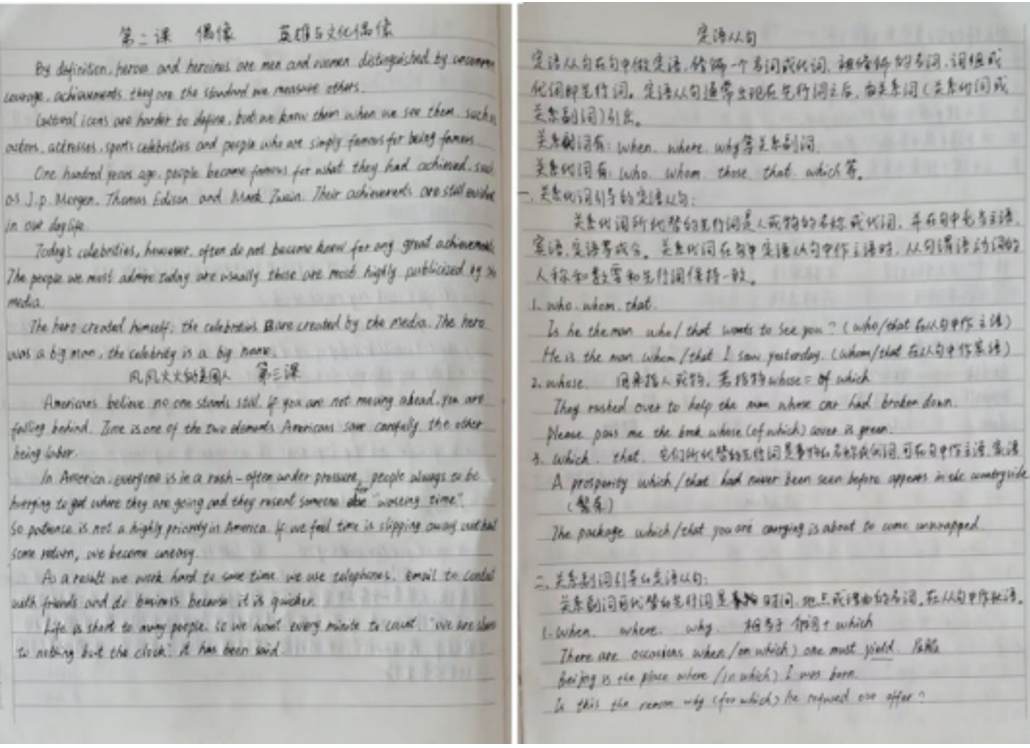 第二课 偶像 英雄与文化偶像
By definition, heroes and heroines are men and women distinguished by uncommon
courage, achievements, they are the standard we measure others.
Cultural icons are harder to define, but we know them when we see them, such
actors, actresses, sports celebrities and people who are simply famous for being famous.
One hundred years ago, people became famous for what they had achieved, such
as J.p. Morgen, Thomas Edison and Mark Twain. Their achievements are still evident
in our day life.
Today's celebrities, however, often do not become know for any great achievements
The people we most admire today are usually those are most highly publicized by the
media.
The hero created himself; the celebrities are created by the media. The hero
was a big man, the celebrity is a big name.
风风火火的美国人 第三课
Americans believe no one stands still. if you are not moving ahead, you are
falling behind. Time is one of the two elements Americans save carefully, the other
being labor.
In America, everyone is in a rush - often under pressure, people always to be
hurrying to get where they are going and they resent someone for "wasting time".
So patience is not a highly priority in America. If we feel time is slipping away without
some return, we become uneasy.
As a result we work hard to save time, we use telephones, email to contact
with friends and do business because it is quicker.
Life is short to many people, so we want every minute to count. "We are slaves
to nothing but the clock" it has been said.
定语从句
定语从句在句中做定语，修饰一个名词或代词，被修饰的名词，词组或
代词即先行词。定语从句通常出现在先行词之后，由关系词（关系代词或
关系副词）引出。
关系副词有：when, where, why等关系副词
关系代词有：who, whom, those, that, which等。
一、关系代词引导的定语从句：
关系代词所代替的先行词是人或物的名称或代词，并在句中充当主语，
宾语，定语等成分。关系代词在定语从句中作主语时，从句谓语动词的
人称和数要和先行词保持一致。
1. who, whom, that.
Is he the man who/that wants to see you? (who/that在从句中作主语)
He is the man whom/that I saw yesterday. (whom/that在从句中作宾语)
2. whose 用来指人或物，若指物whose = of which
They rushed over to help the man whose car had broken down.
Please pass me the book whose (of which) cover is green.
3. which, that 它们所代替的先行词是事物的名称或代词，可在句中作主语，宾语
A prosperity which/that had never been seen before appears in the countryside
(繁荣)
The package which/that you are carrying is about to come unwrapped.
二、关系副词引导的定语从句：
关系副词可代替的先行词是时间，地点或理由的名词，在从句中作状语。
1. when, where, why 相当于 介词 + which
There are occasions when (on which) one must yield.
Beijing is the place where (in which) I was born.
Is this the reason why (for which) he refused our offer?